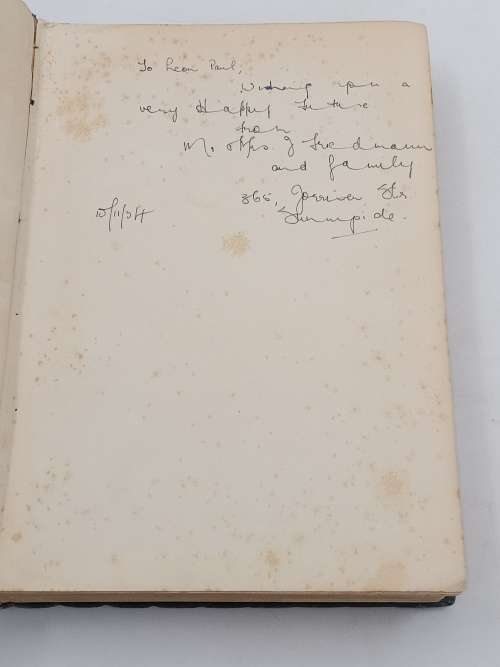 To Leon Paul,
Wishing you a
very Happy Future
from
Mr & Mrs J Friedmann
and family
365, Gorriver Str
Sunnyside.
15/11/54